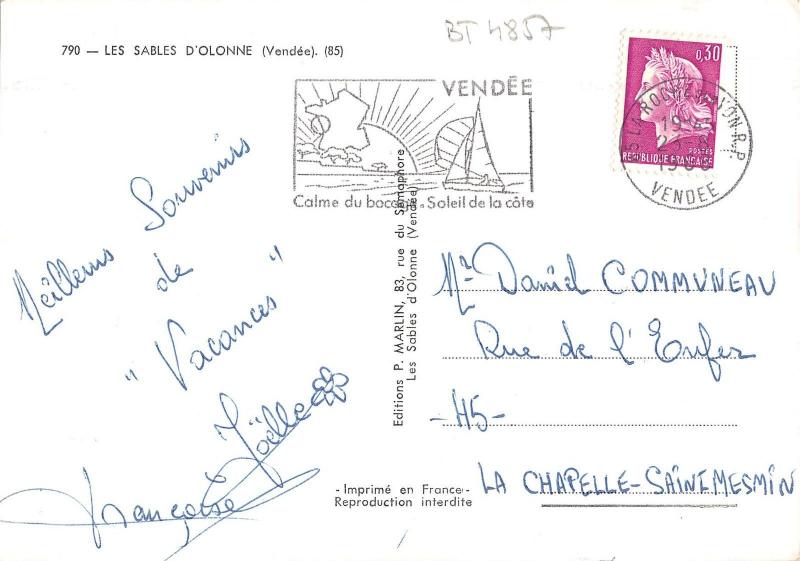 BT 4857
790 — LES SABLES D'OLONNE (Vendée). (85)
VENDÉE
Calme du bocage. Soleil de la côte
0,30
POSTES
REPUBLIQUE FRANÇAISE
LA ROCHE-S-YON R.P.
VENDEE
Meilleurs Souvenirs
de
" Vacances "
Joëlle
Françoise
Editions P. MARLIN, 83, rue du Sémaphore
Les Sables d'Olonne (Vendée)
Mr Daniel COMMUNEAU
Rue de l'Enfer
-45-
LA CHAPELLE-SAINEMESMIN
- Imprimé en France -
Reproduction interdite